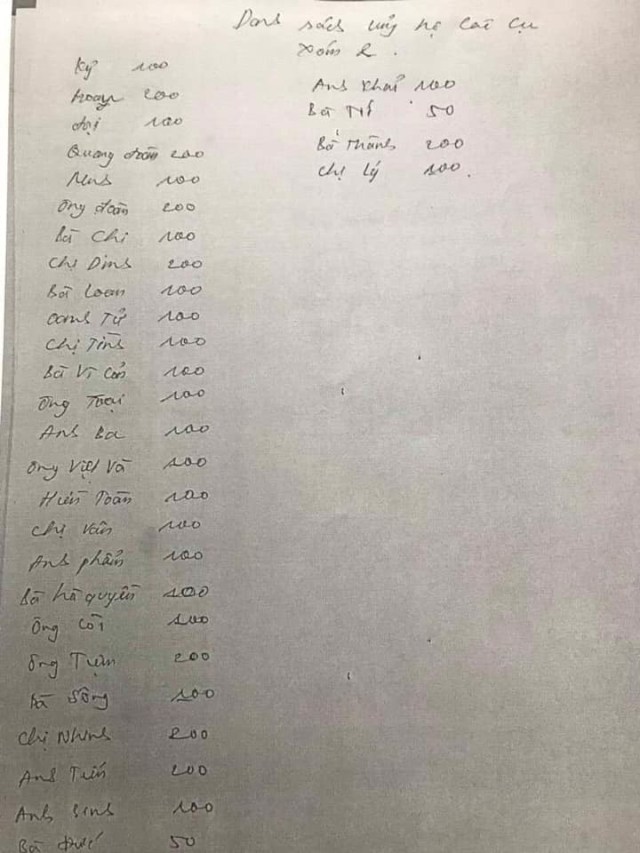 Danh sách ủng hộ các cụ
xóm 2.
Kỷ 100
Hoay 200
đại 100
Quang đoàn 200
100
Ông đoàn 200
Bà Chi 100
Chị Dinh 200
Bà Loan 100
Oanh Tử 100
Chị Tình 100
Bà Vì 100
Ông Toại 100
Anh Ba 100
Ông Việt Và 100
Hiền Toàn 100
Chị Vân 100
Anh phấn 100
Bà hà quyền 100
Ông Cối 100
Ông Tuận 200
Bà Sông 100
Chị Nhinh 200
Anh Tiến 200
Anh Sinh 100
Bà Đức 50
Anh Khải 100
Bà Tí 50
Bà Thành 200
Chị Lý 100.